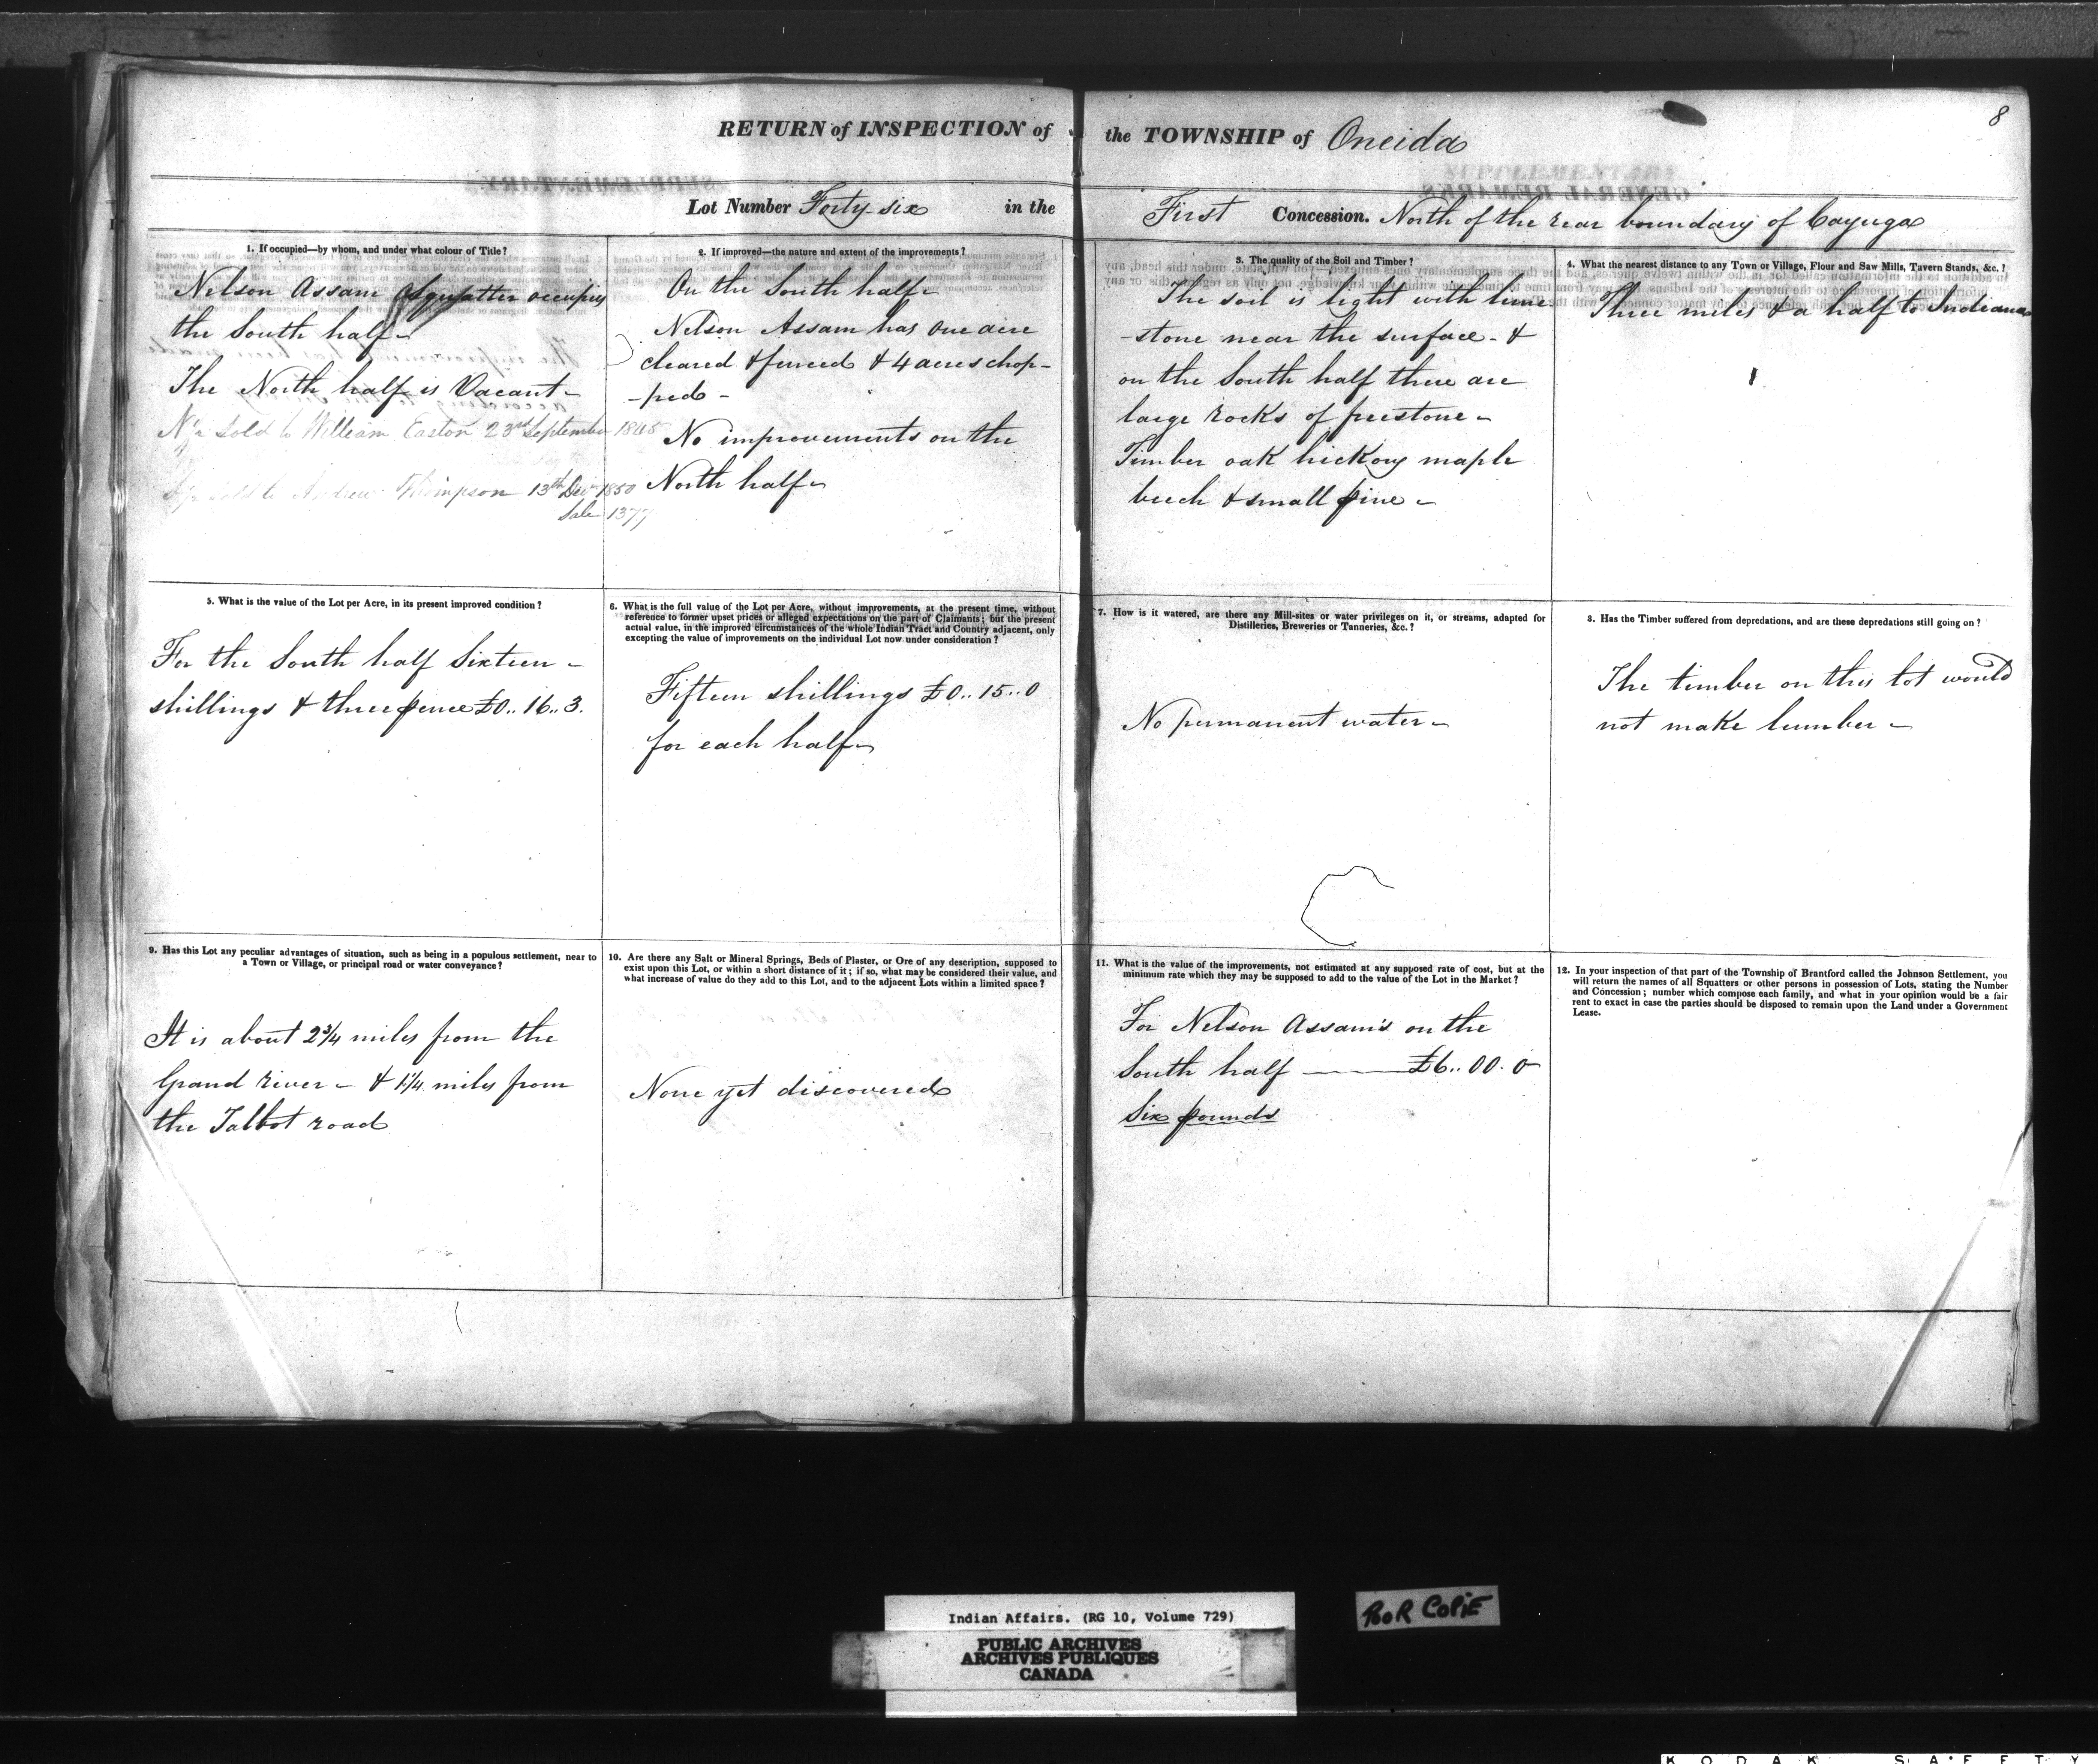 8
RETURN of INSPECTION of the TOWNSHIP of Oneida
Lot Number Forty-six in the First Concession. North of the rear boundary of Cayuga
1. If occupied—by whom, and under what colour of Title?
Nelson Assam a squatter occupies
the South half-
The North half is Vacant-
N½ Sold to William Easton 23rd September 1845
S½ Sold to Andrew Thompson 13th Dec 1850
Sale 1377
2. If improved—the nature and extent of the improvements?
On the South half-
Nelson Assam has one acre
cleared & fenced & 4 acres chop-
-ped-
No improvements on the
North half-
3. The quality of the Soil and Timber?
The soil is light with lime
-stone near the surface- &
on the South half there are
large rocks of freestone-
Timber oak hickory maple
beech & small pine-
4. What the nearest distance to any Town or Village, Flour and Saw Mills, Tavern Stands, &c.?
Three miles & a half to Indiana
5. What is the value of the Lot per Acre, in its present improved condition?
For the South half Sixteen-
shillings & three pence £0..16..3.
6. What is the full value of the Lot per Acre, without improvements, at the present time, without
reference to former upset prices or alleged expectations on the part of Claimants; but the present
actual value, in the improved circumstances of the whole Indian Tract and Country adjacent, only
excepting the value of improvements on the individual Lot now under consideration?
Fifteen shillings £0..15..0
for each half-
7. How is it watered, are there any Mill-sites or water privileges on it, or streams, adapted for
Distilleries, Breweries or Tanneries, &c.?
No permanent water-
8. Has the Timber suffered from depredations, and are these depredations still going on?
The timber on this lot would
not make lumber-
9. Has this Lot any peculiar advantages of situation, such as being in a populous settlement, near to
a Town or Village, or principal road or water conveyance?
It is about 2¾ miles from the
Grand river- & 1¼ miles from
the Talbot road
10. Are there any Salt or Mineral Springs, Beds of Plaster, or Ore of any description, supposed to
exist upon this Lot, or within a short distance of it; if so, what may be considered their value, and
what increase of value do they add to this Lot, and to the adjacent Lots within a limited space?
None yet discovered
11. What is the value of the improvements, not estimated at any supposed rate of cost, but at the
minimum rate which they may be supposed to add to the value of the Lot in the Market?
For Nelson Assam's on the
South half — £6..00.0
Six pounds
12. In your inspection of that part of the Township of Brantford called the Johnson Settlement, you
will return the names of all Squatters or other persons in possession of Lots, stating the Number
and Concession; number which compose each family, and what in your opinion would be a fair
rent to exact in case the parties should be disposed to remain upon the Land under a Government
Lease.
Indian Affairs. (RG 10, Volume 729)
PUBLIC ARCHIVES
ARCHIVES PUBLIQUES
CANADA
POOR COPIE
KODAK SAFETY